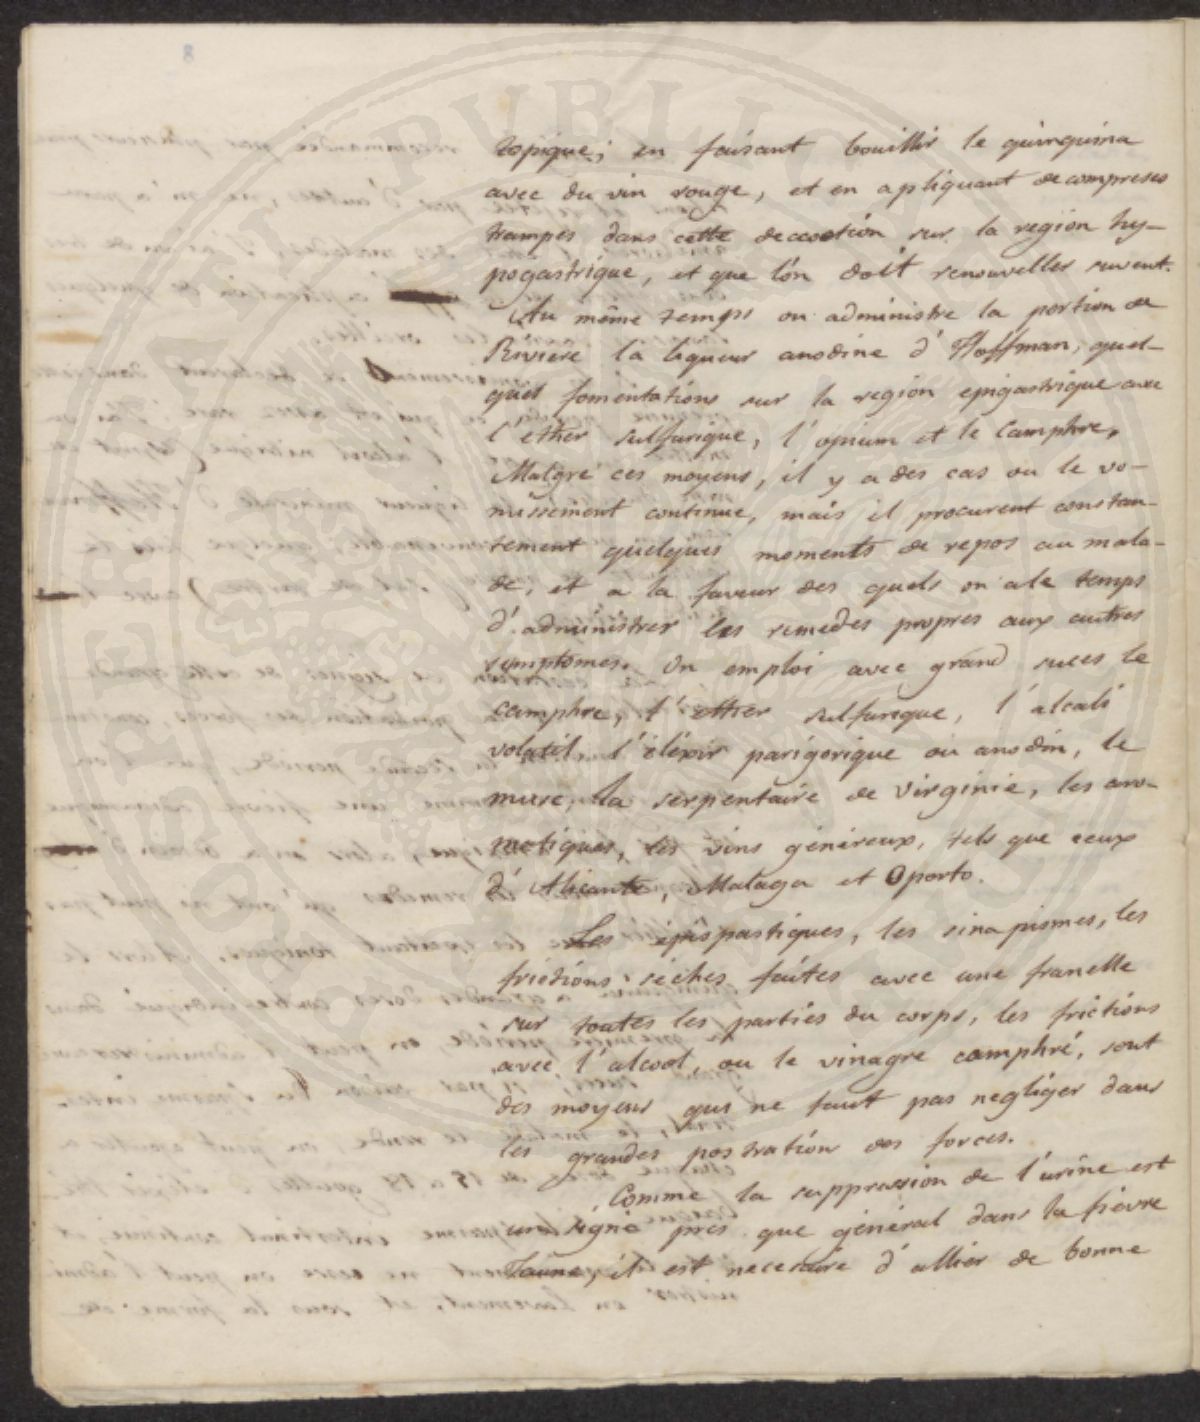 topique; en faisant bouillir le quinquina
avec du vin rouge, et en apliquant de compreses
trampes dans cette decoction sur la region hy-
pogastrique, et que lón doit renouveller suvent.
Au même temps on administre la portion de
Riviere la liqueur anodine d'Hoffman, quel-
ques fomentations sur la region epigastrique avec
l'ether sulfurique, l'opium et le Camphre,
Malgré ces moyens, il y a des cas ou le vo-
missiment continue, mais il procurent constan-
tement quelques moments de repos au mala-
de, et a la faveur des quels on a le temps
d'administrer les remedes propres aux autres
symptomes. On emploi avec grand suces le
camphre, l'ether sulfurique, l'alcali
volatil, l'eléxir parigorique ou anodin, le
musc, la serpentaire de Virginie, les aro-
matiques, les vins généreux, tels que ceux
d'Alicante, Malaga et Oporto.
Les epispastiques, les sinapismes, les
frictions séches faites avec une franelle
sur toutes les parties du corps, les frictions
avec l'alcool, ou le vinagre camphré, sont
des moyens qus ne faut pas negliger dans
les grandes postration des forces.
Comme la suppression de l'urine est
un signe pres que général dans la fiévre
Jaune, il est necessaire d'allier de bonne